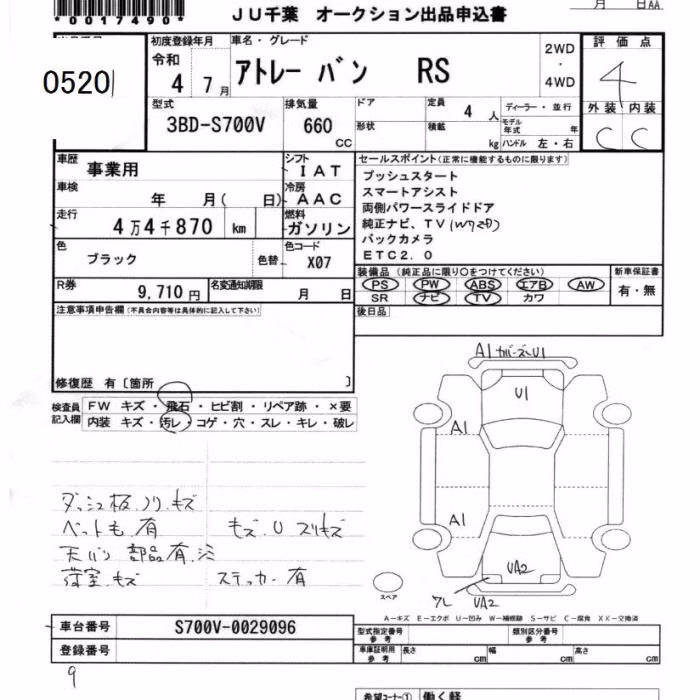 *0017490*
JU千葉 オークション出品申込書
月 日AA
0520
初度登録年月
令和
4 7月
車名・グレード
アトレー バン RS
2WD
・
4WD
評価点
4
外装 内装
C C
型式
3BD-S700V
排気量
660
CC
ドア
形状
定員 4 人
積載 kg
ディーラー・並行
モデル年式 年
ハンドル 左・右
車歴 事業用
シフト IAT
車検 年 月( 日)
冷房 AAC
走行 4万4千870 km
燃料 ガソリン
色 ブラック 色替
色コード X07
R券 9,710円
名変通知期限 月 日
セールスポイント(正常に機能するものに限ります)
プッシュスタート
スマートアシスト
両側パワースライドドア
純正ナビ、TV
バックカメラ
ETC2.0
装備品(純正品に限り○をつけてください)
PS PW ABS エアB AW
SR ナビ TV カワ
新車保証書
有・無
後日品
注意事項申告欄(不具合内容等は具体的に記入して下さい)
修復歴 有〔箇所 〕
検査員記入欄
FW キズ・飛石・ヒビ割・リペア跡・×要
内装 キズ・汚レ・コゲ・穴・スレ・キレ・破レ
A1 カバーズレU1
U1
A1
A1
UA2
ワレ UA2
ダッシュ板ノリ、キズ
ベットも有 キズ、U スリキズ
天バリ 部品有
荷室キズ ステッカー有
スペア
A-キズ E-エクボ U-凹み W-補修跡 S-サビ C-腐食 XX-交換済
車台番号 S700V-0029096
登録番号
型式指定番号
参考
類別区分番号
参考
車庫証明用
参考
長さ cm 幅 cm 高さ cm
9
希望コーナー① 働く軽